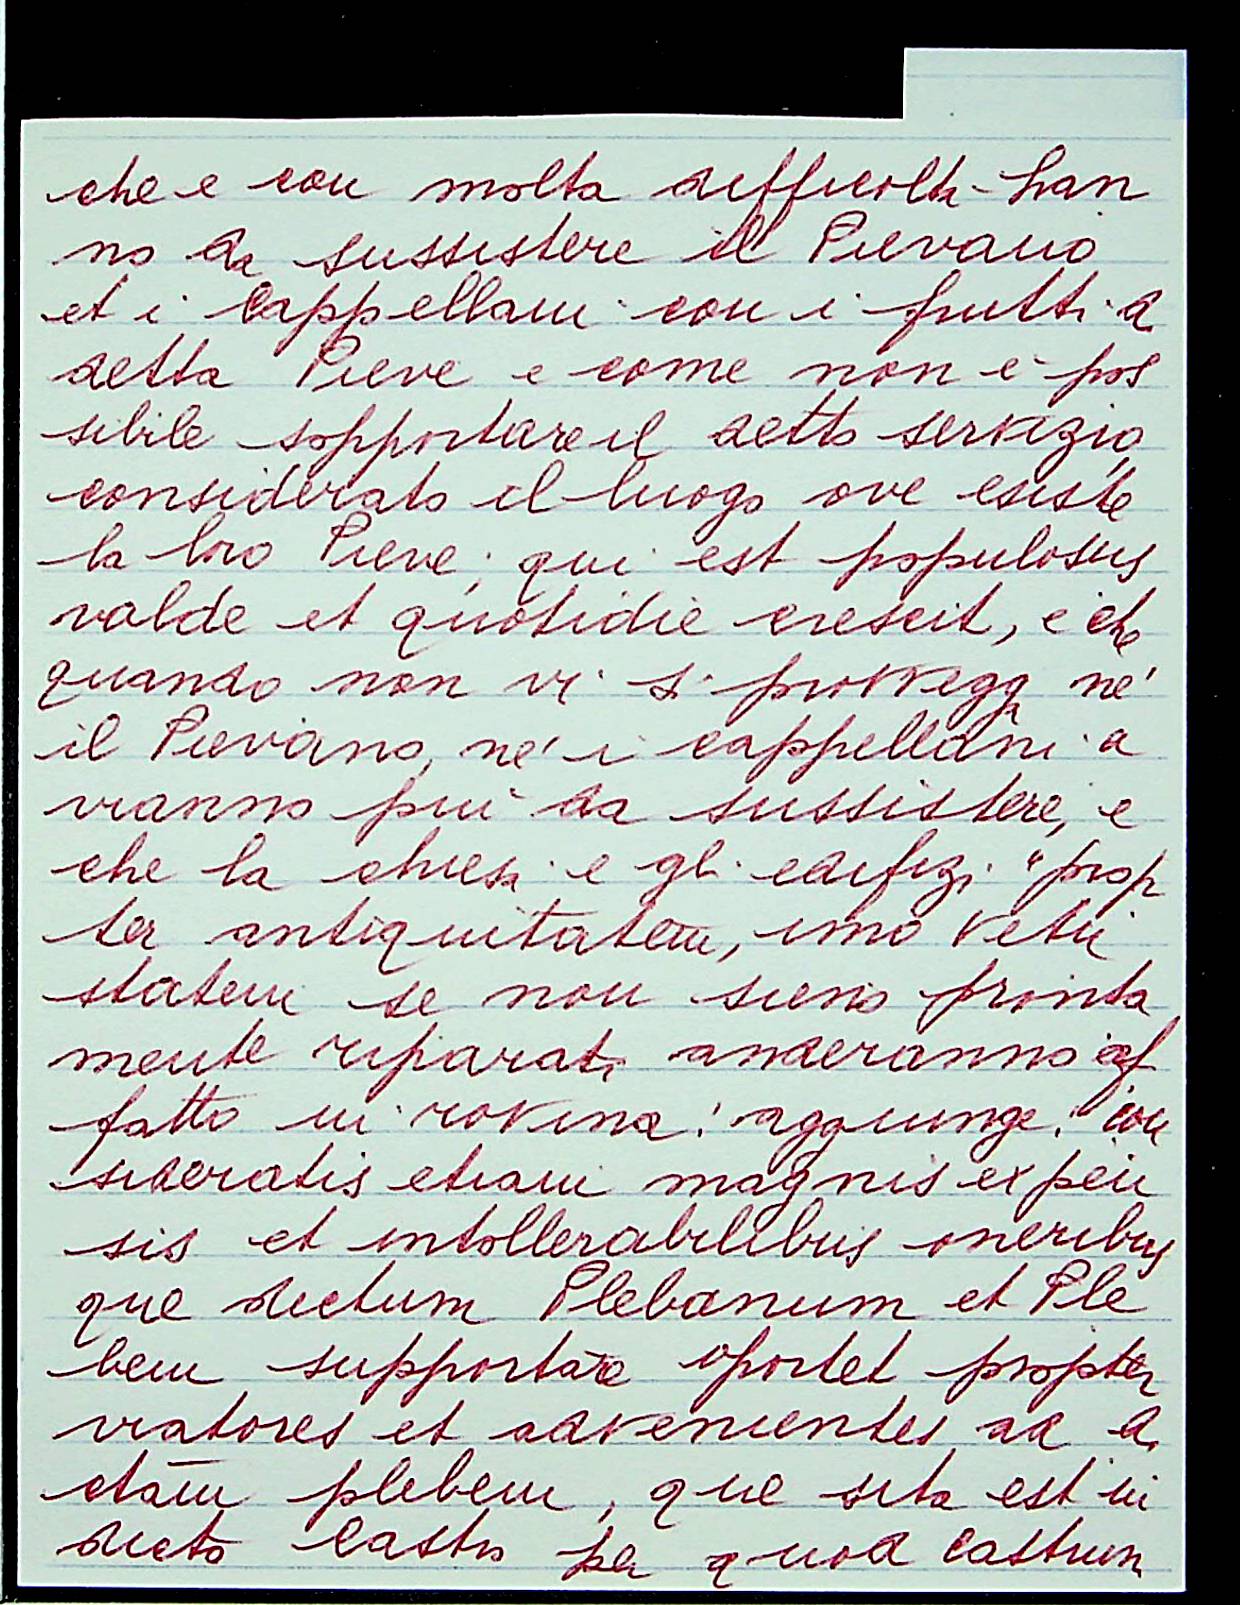 che e con molta difficoltà han
no da sussistere il Pievano
et i Cappellani con i frutti d
detta Pieve e come non è pos
sibile sopportare il detto servizio,
considerato il luogo ove esiste
la loro Pieve; qui est populosus
valde et quotidie crescit, e che
quando non vi si provvegga né
il Pievano, né i cappellani a
vranno più da sussistere, e
che la chiesa e gli edifizi "prop
ter antiquitatem, imo vetu
statem se non sieno pronta
mente riparati anderanno af
fatto in rovina: aggiunge: "con
sideratis etiam magnis expen
sis et intollerabilibus oneribus
que dictum Plebanum et Ple
bem supportare oportet propter
viatores et advenientes ad di
ctam plebem, que sita est in
dicto Castro per quod castrum